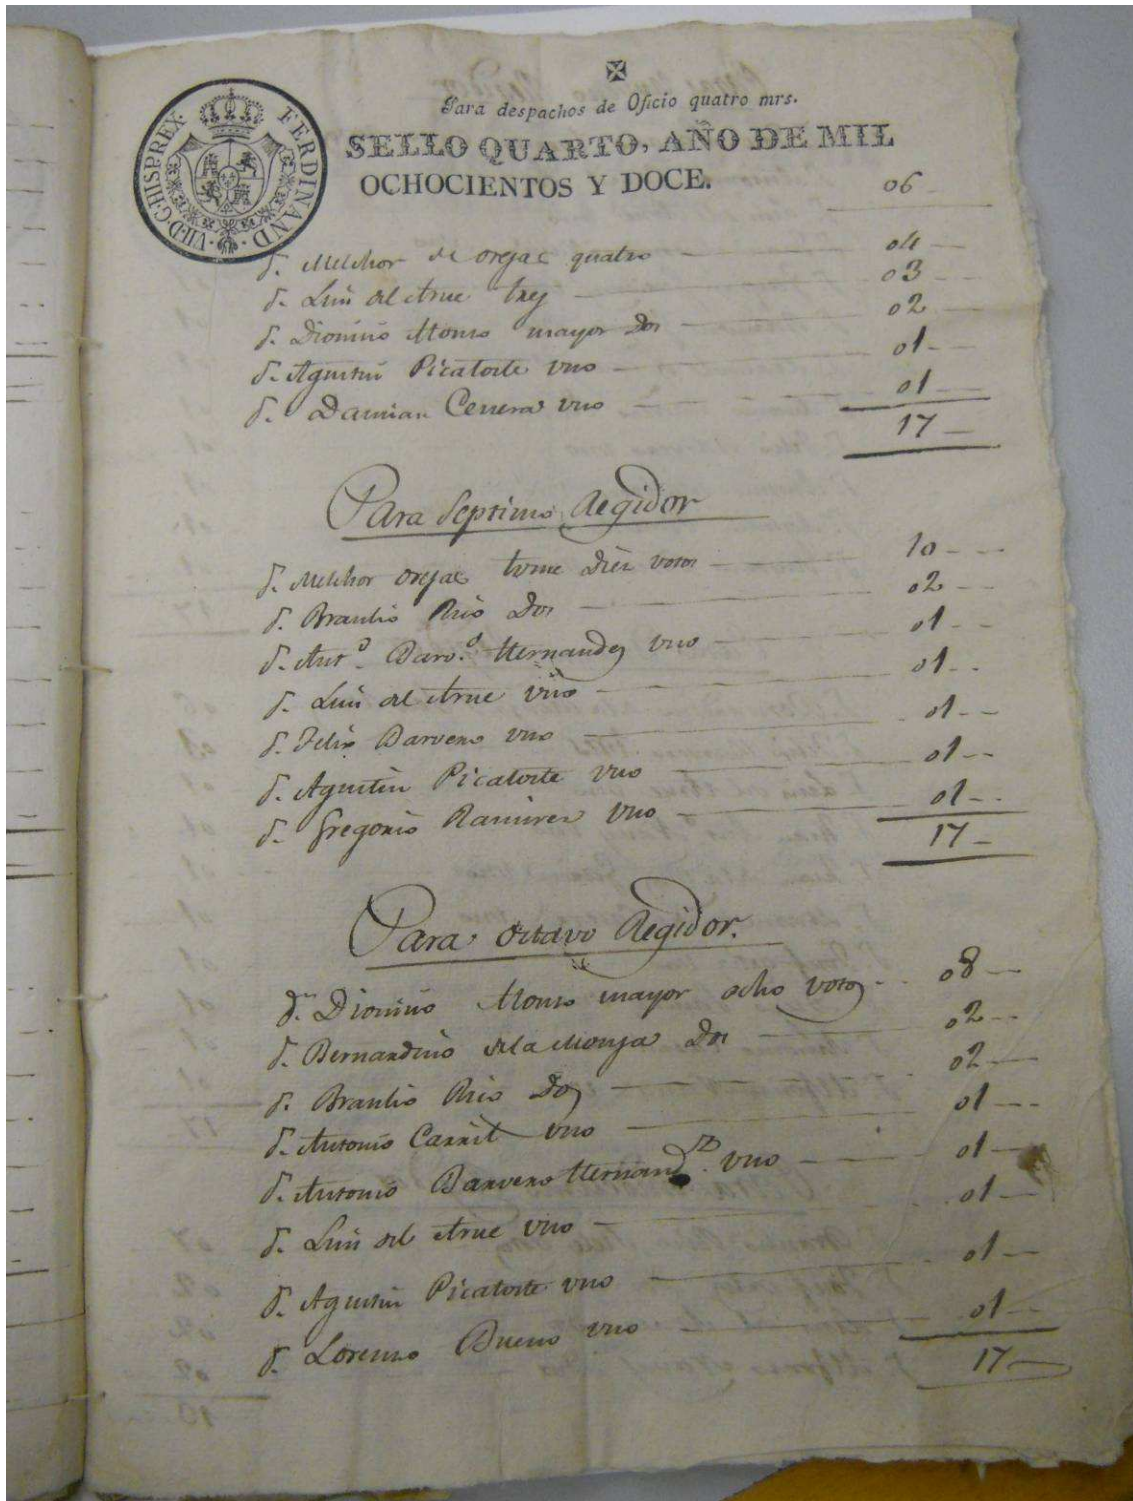 Para despachos de Oficio quatro mrs.
SELLO QUARTO, AÑO DE MIL
OCHOCIENTOS Y DOCE.
FERDINAND. VII. D. G. HISP. REX.
06
Dn. Melchor de orejas quatro 04
Dn. Luis del Arue trej 03
Dn. Dionisio Alonso mayor Dos 02
Dn. Agustin Picatoste vno 01
Dn. Damian Cerrera vno 01
17
Para Septimo Regidor
Dn. Melchor orejas tvme Diez votos 10
Dn. Braulio Rio Dos 02
Dn. Anto. Barvo. Hernandez vno 01
Dn. Luis del Arue vno 01
Dn. Felix Barvero vno 01
Dn. Agustin Picatoste vno 01
Dn. Gregorio Ramirez vno 01
17
Para octavo Regidor.
Dn. Dionisio Alonso mayor ocho votos 08
Dn. Bernardino de la Monja Dos 02
Dn. Braulio Rio Dos 02
Dn. Antonio Carril vno 01
Dn. Antonio Barvero Hernandz. vno 01
Dn. Luis del Arue vno 01
Dn. Agustin Picatoste vno 01
Dn. Lorenzo Bueno vno 01
17